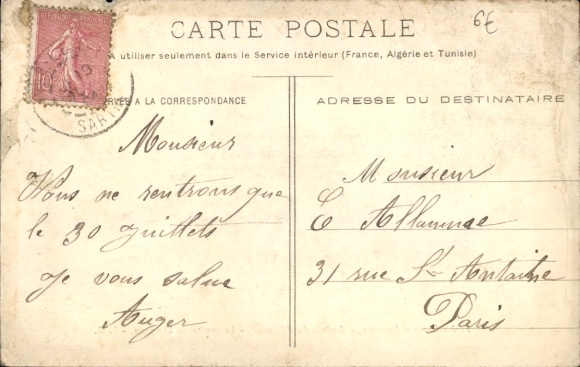 CARTE POSTALE
6€
utiliser seulement dans le Service intérieur (France, Algérie et Tunisie)
A LA CORRESPONDANCE
ADRESSE DU DESTINATAIRE
10
SARTHE
Monsieur
Nous ne rentrons que
le 30 Juillets
Je vous salue
Auger
Monsieur
E Allamnae
31 rue St Antoine
Paris